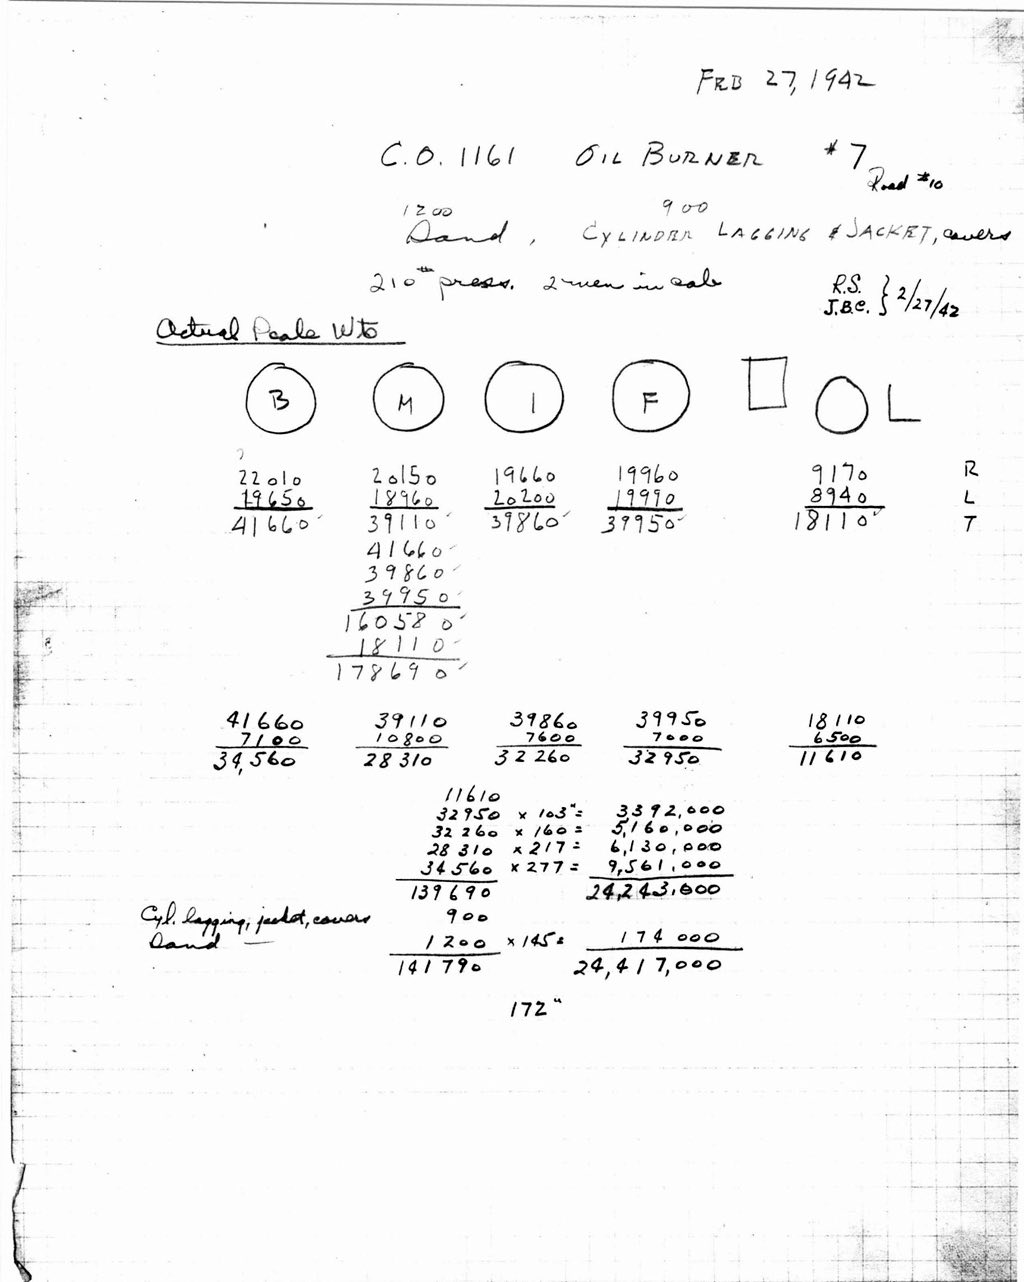 FEB 27, 1942
C.O. 1161 OIL BURNER #7
Road #10
1200 900
Sand, CYLINDER LAGGING & JACKET, covers
210# press. 2 men in cab
R.S. } 2/27/42
J.B.C.
Actual Scale Wts
B M I F L
22010 20150 19660 19960 9170 R
19650 18960 20200 19990 8940 L
41660 39110 39860 39950 18110 T
41660
39860
39950
160580
18110
178690
41660 39110 39860 39950 18110
7100 10800 7600 7000 6500
34,560 28310 32260 32950 11610
11610
32950 x 103" = 3392,000
32260 x 160 = 5,160,000
28310 x 217 = 6,130,000
34560 x 277 = 9,561,000
139690 24,243,000
Cyl. lagging, jacket, covers 900
Sand — 1200 x 145 = 174000
141790 24,417,000
172"